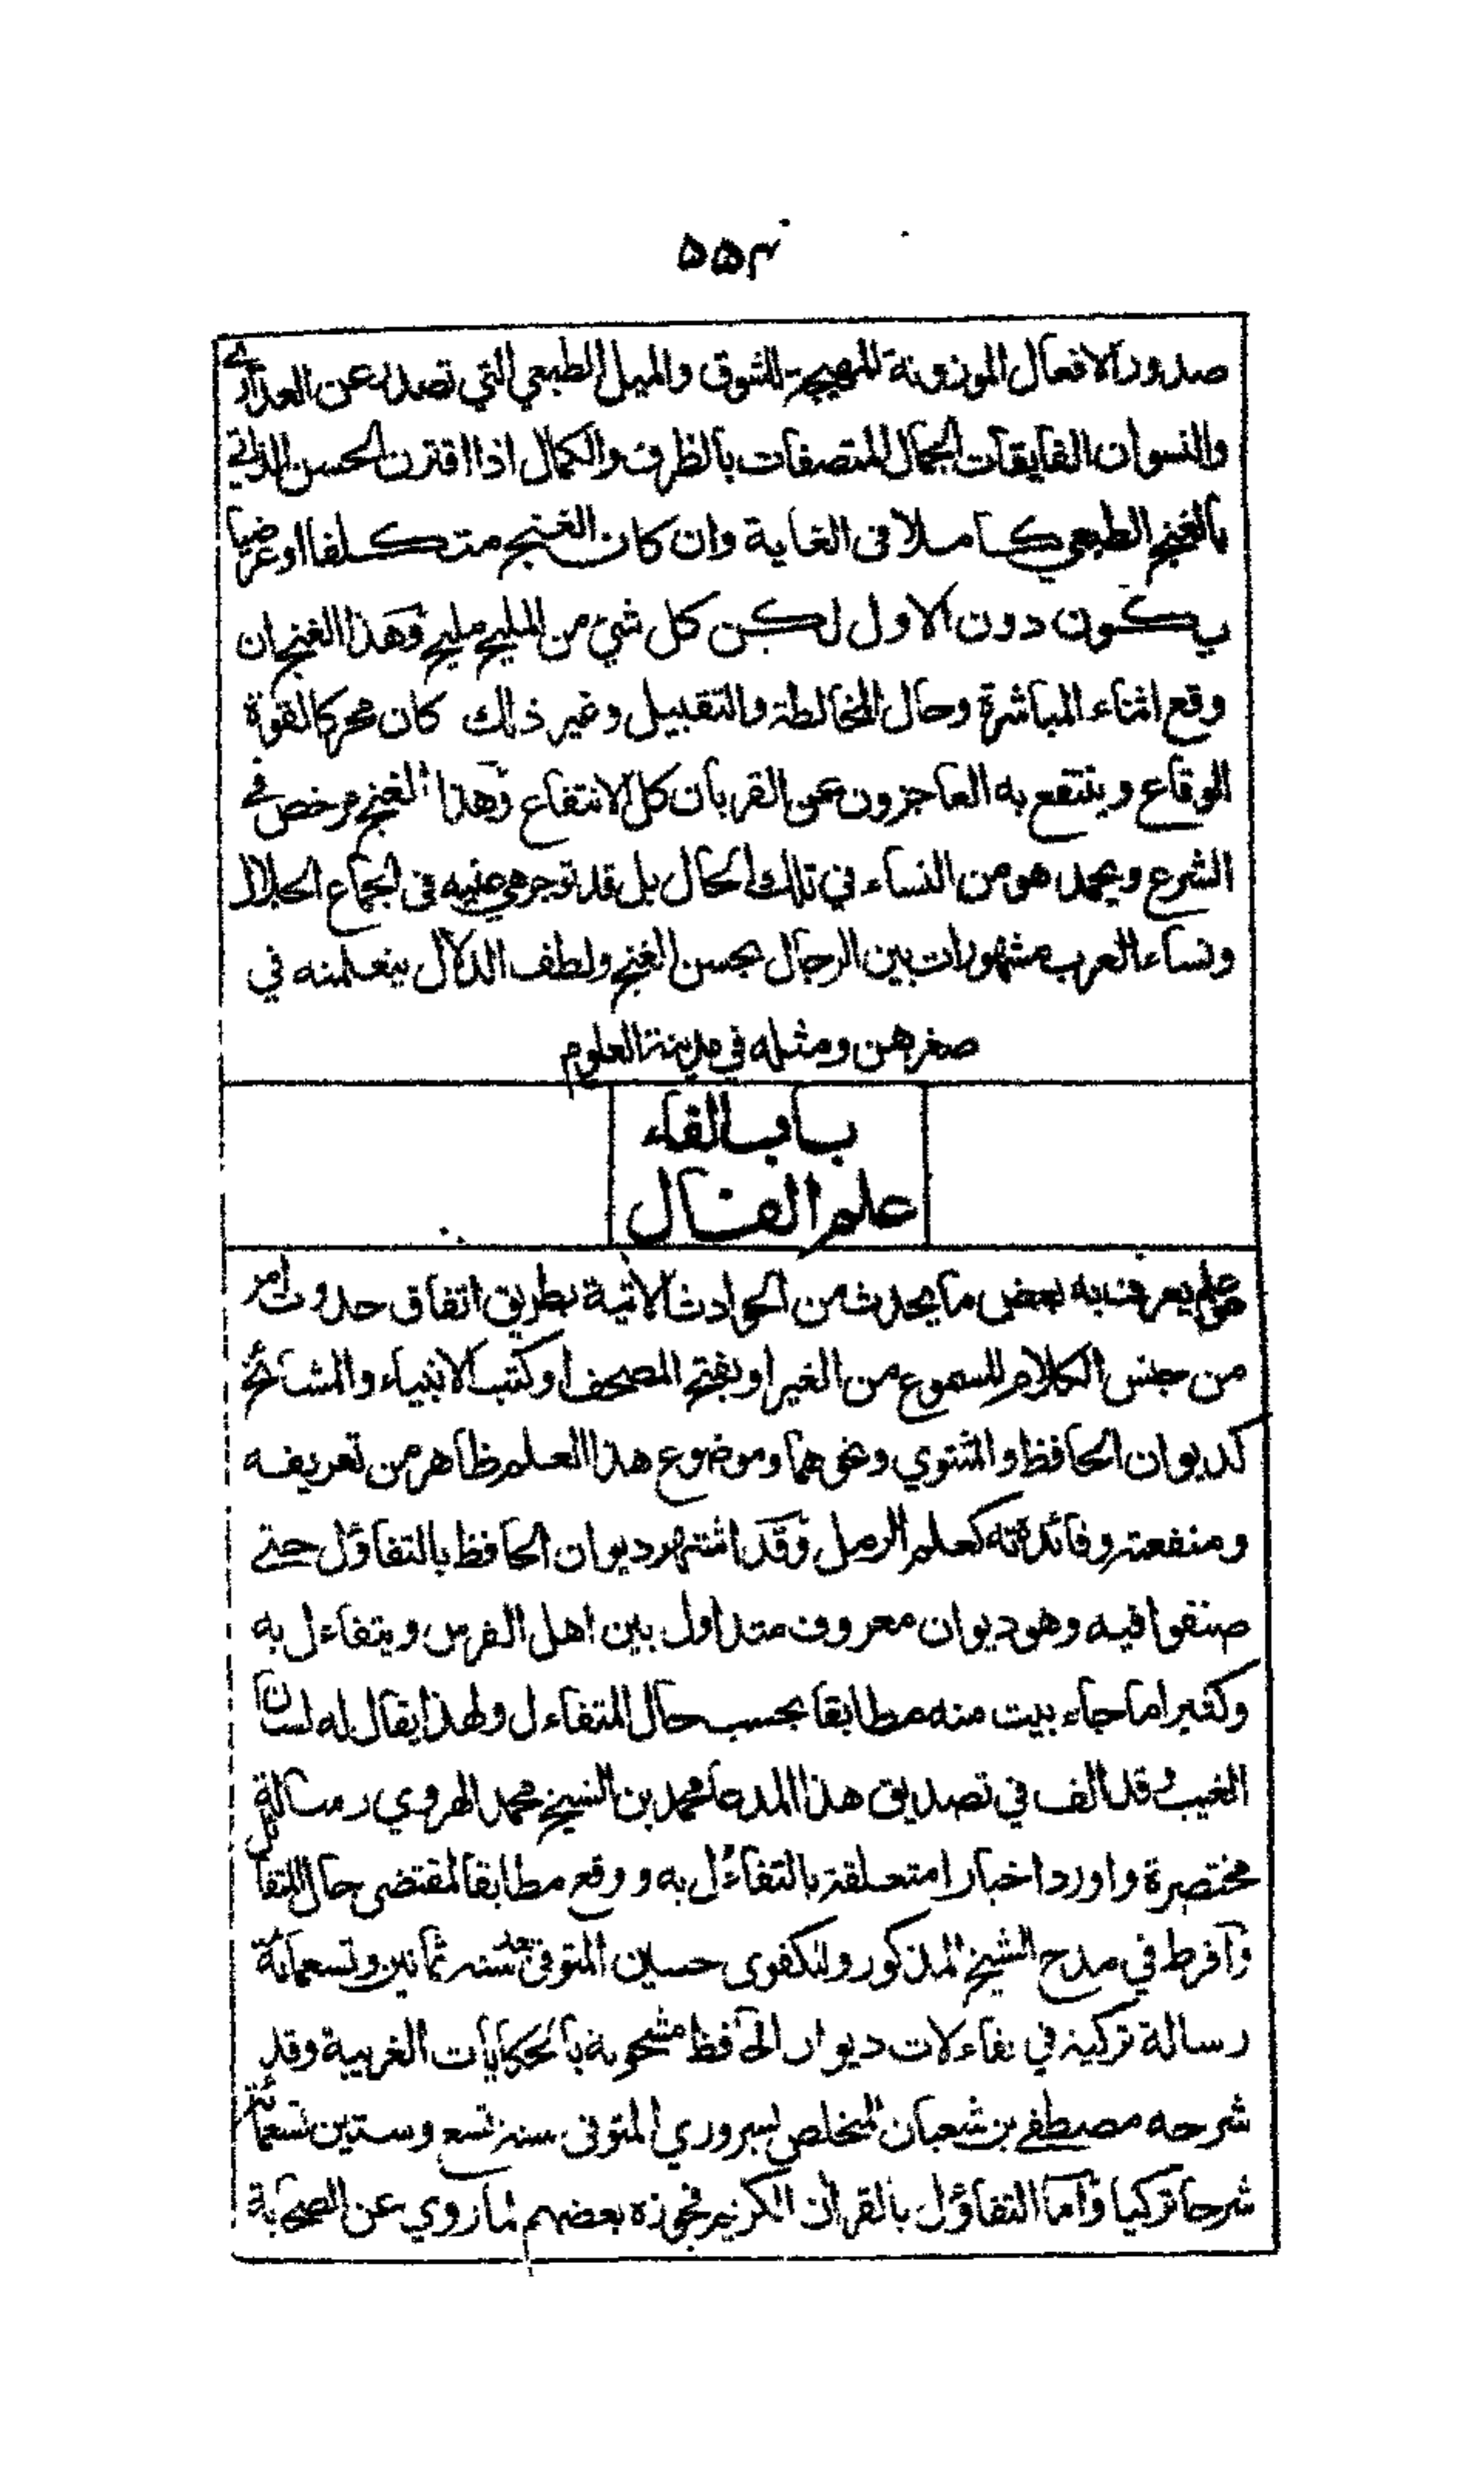 ۵۵۴
صدور الافعال الموزونة المهيجة للشوق والميل الطبعي التي تصدر عن العذارى
والنسوان الفايقات الجمال المتصفات بالظرف والكمال اذا اقترن الحسن الذاتي
بالغنج الطبعي كاملا فى الغاية وان كان الغنج متكلفا اوعرضيا
يكون دون الاول لكن كل شيء من المليح مليح وهذا الغنج ان
وقع اثناء المباشرة وحال المخالطة والتقبيل وغير ذلك كان محركا لقوة
الوقاع وينتفع به العاجزون عن القربان كل الانتفاع وهذا الغنج مرخص في
الشرع ويحمد هو من النساء في تلك الحال بل قد توجر هي عليه فى الجماع الحلال
ونساء العرب مشهورات بين الرجال بحسن الغنج ولطف الدلال يتعلمنه في
صغرهن ومثله في مدينة العلوم
باب الفاء
علم الفال
هو علم يعرف به بعض ما يحدث من الحوادث الآتية بطريق اتفاق حدوث امر
من جنس الكلام المسموع من الغير او بفتح المصحف او كتب الانبياء والمشائخ
كديوان الحافظ والمثنوي ونحوهما وموضوع هذا العلم ظاهر من تعريفه
ومنفعته وفائدته كعلم الرمل وقد اشتهر ديوان الحافظ بالتفاؤل حتى
صنفوا فيه وهو ديوان معروف متداول بين اهل الفرس ويتفاءل به
وكثيرا ما جاء بيت منه مطابقا بحسب حال المتفاءل ولهذا يقال له لسان
الغيب وقد الف في تصديق هذا المدعا محمد بن الشيخ محمد الهروي رسالة
مختصرة واورد اخبارا متعلقة بالتفاؤل به ووقع مطابقا لمقتضى حال المتفائل
وافرط في مدح الشيخ المذكور وللكفوى حسين المتوفى بعد سنة ثمانين وتسعمائة
رسالة تركية في تفاءلات ديوان الحافظ مشحونة بالحكايات الغريبة وقد
شرحه مصطفى بن شعبان المتخلص بسروري المتوفى سنة تسع وستين تسعمائة
شرحا تركيا واما التفاؤل بالقرآن الكريم فجوزه بعضهم لما روي عن الصحابة